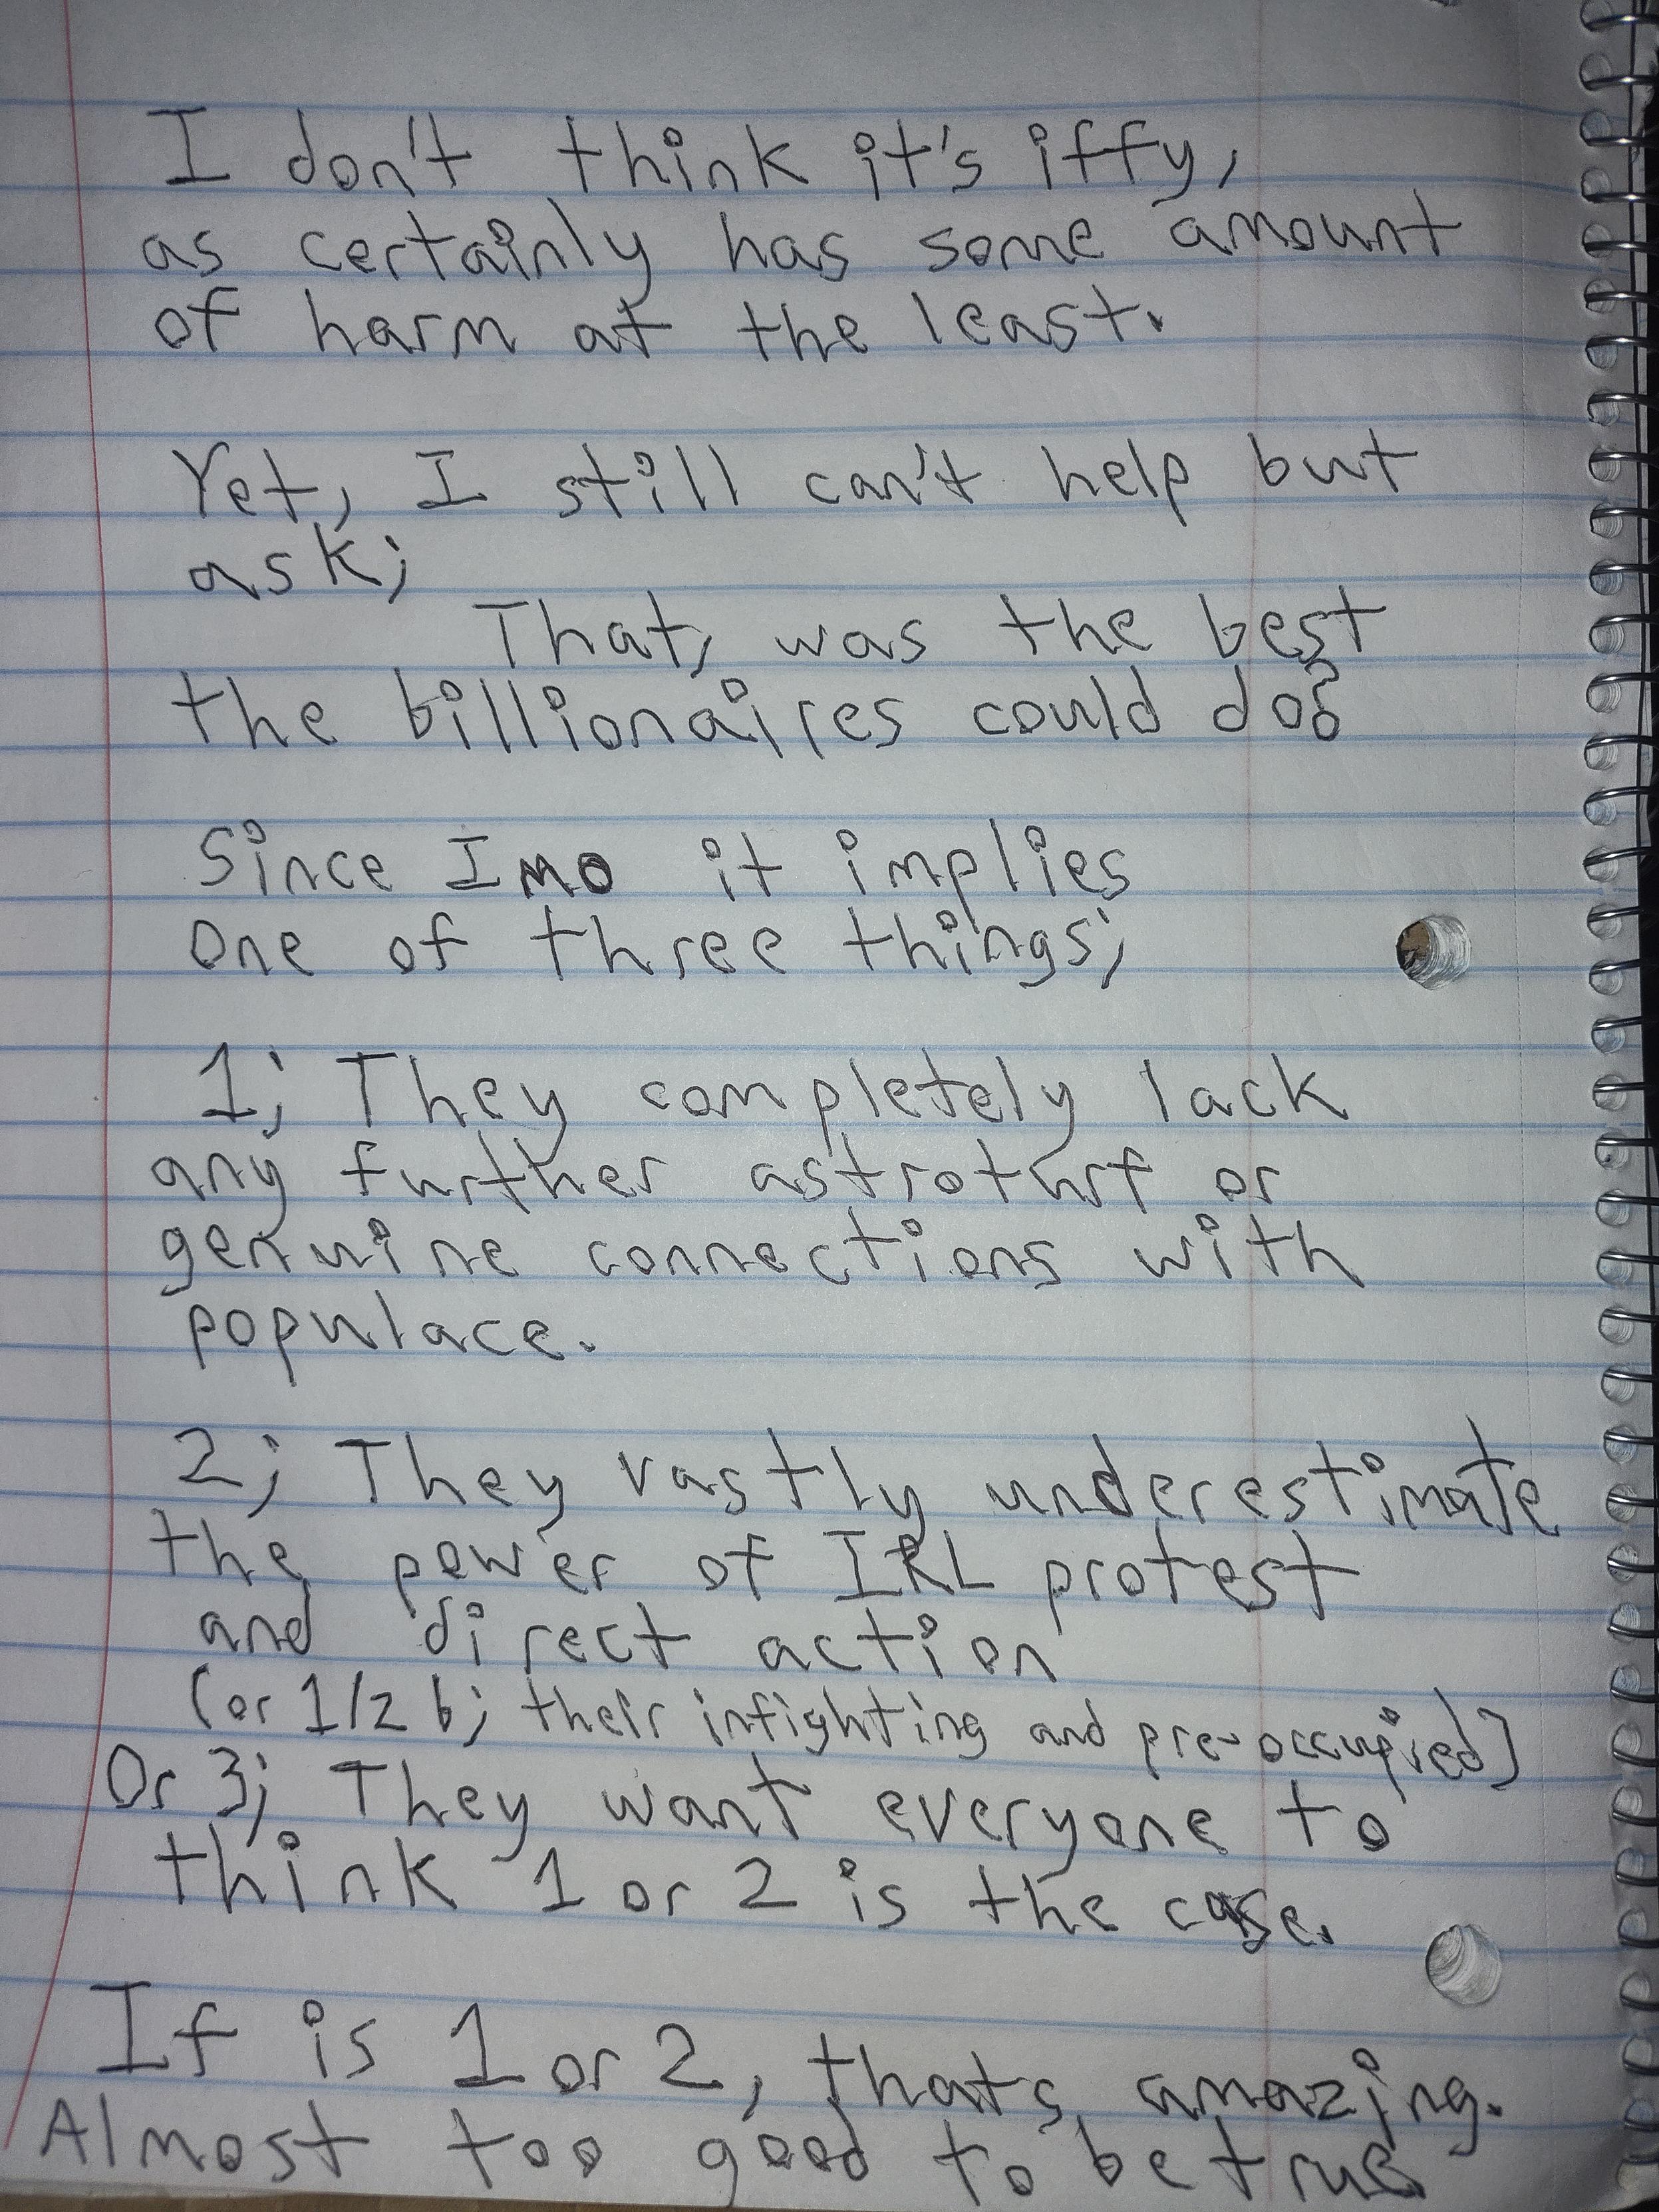 I don't think it's iffy,
as certainly has some amount
of harm at the least.
Yet, I still can't help but
ask;
That, was the best
the billionaires could do?
Since IMO it implies
one of three things;
1; They completely lack
any further astroturf or
genuine connections with
populace.
2; They vastly underestimate
the power of IRL protest
and direct action
(or 1/2 b; their infighting and pre-occupied)
Or 3; They want everyone to
think 1 or 2 is the case.
If is 1 or 2, thats amazing.
Almost too good to be true